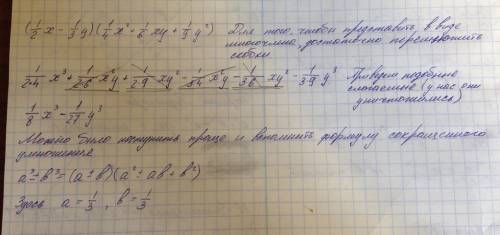 (1/2 x - 1/3 y)(1/4 x² + 1/6 xy + 1/9 y²) Для того, чтобы представить в виде
многочлена, достаточно перемножить
скобки.
1/2·4 x³ + 1/2·6 x²y + 1/2·9 xy² - 1/3·4 x²y - 1/3·6 xy² - 1/3·9 y³ Приведем подобные
слагаемые (у нас они
уничтожились)
1/8 x³ - 1/27 y³
Можно было поступить проще и вспомнить формулу сокращенного
умножения
a³ ± b³ = (a ± b)(a² ± ab + b²)
Здесь a = 1/3, b = 1/3